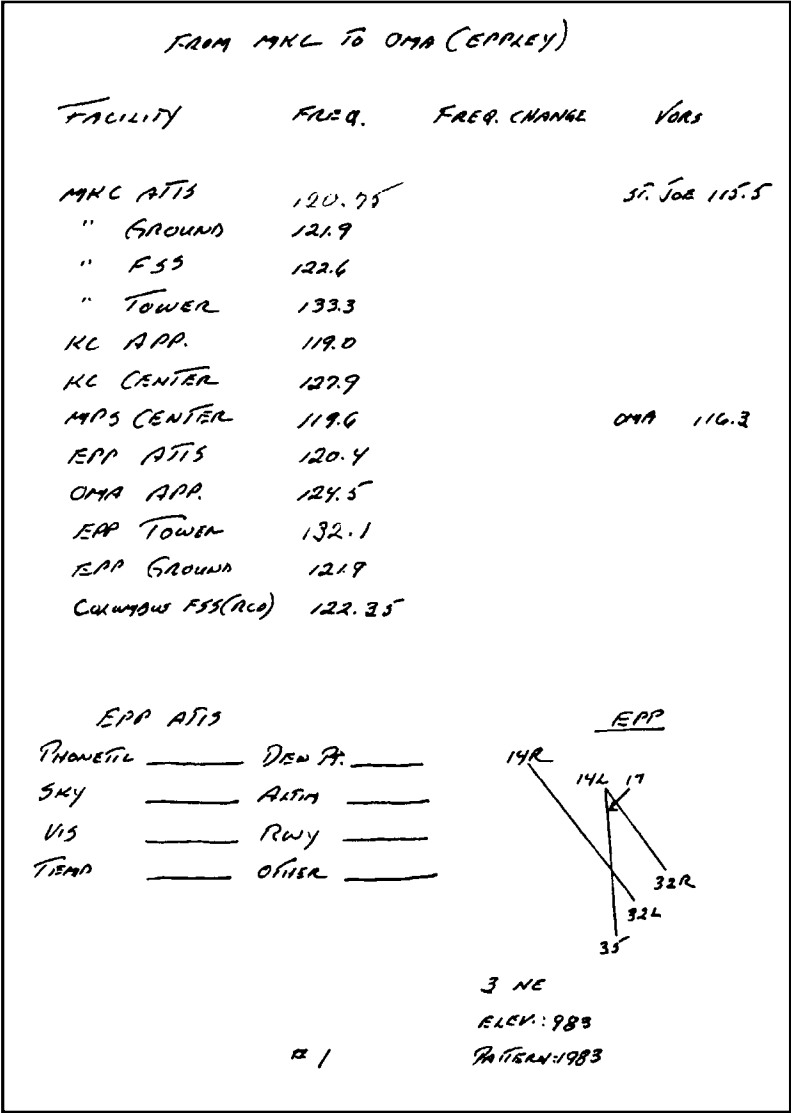 FROM MKC TO OMA (EPPLEY)
FACILITY FREQ. FREQ. CHANGE VORS
MKC ATIS 120.75 ST. JOE 115.5
" GROUND 121.9
" FSS 122.6
" TOWER 133.3
KC APP. 119.0
KC CENTER 127.9
MPS CENTER 119.6 OMA 116.3
EPP ATIS 120.4
OMA APP. 124.5
EPP TOWER 132.1
EPP GROUND 121.9
COLUMBUS FSS (RCO) 122.35
EPP ATIS EPP
PHONETIC DEW PT. 14R
SKY ALTIM 14L 17
VIS RWY
TEMP OTHER 32R
32L
35
3 NE
ELEV.: 983
# 1 PATTERN: 1983